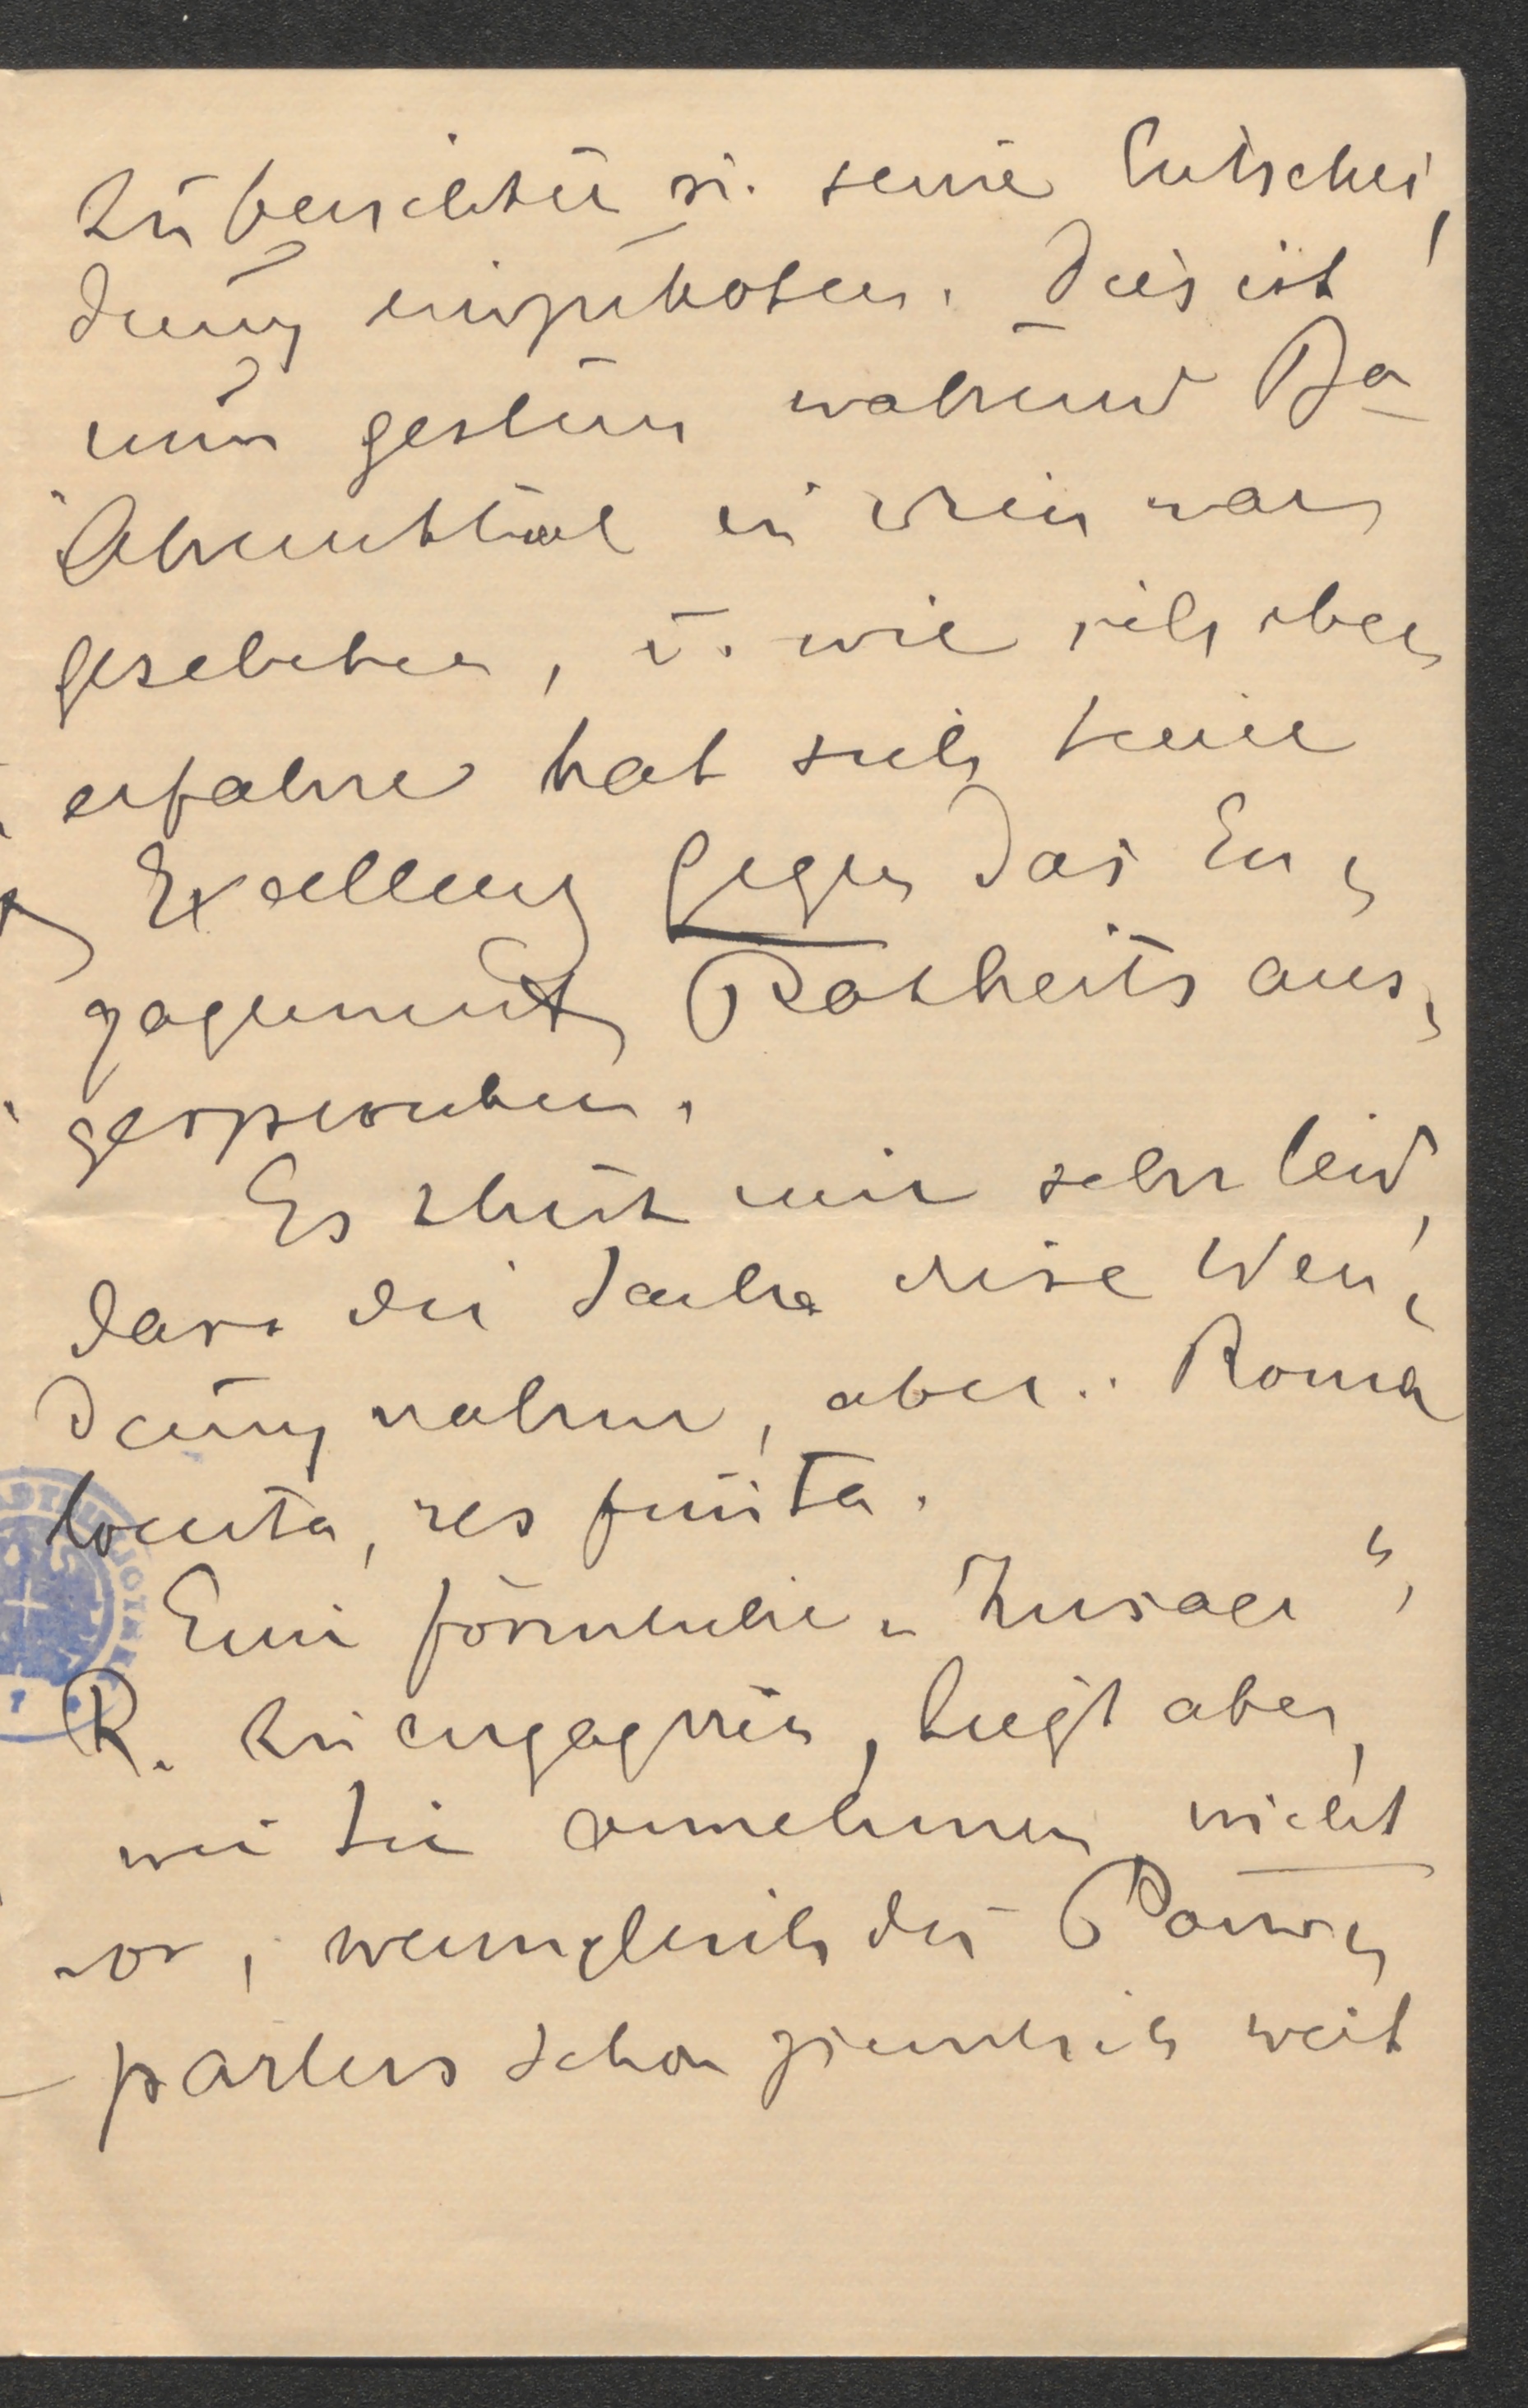 zu berichten u. seine Entschei-
dung einzuholen. Dies ist
nun gestern während Ba
Ährenthal in Wien war
geschehen, u. wie ich eben
erfahre hat sich seine
Exellenz gegen das En-
gagement Rotheits aus-
gesprochen.
Es thut mir sehr leid,
dass die Sache diese Wen-
dung nahm, aber.. Roma
locuta, res finita.
Eine förmliche „Zusage“,
R. zu engagiren, liegt aber,
wie Sie annehmen nicht
vor, wenngleich die Pour-
parlers schon ziemlich weit